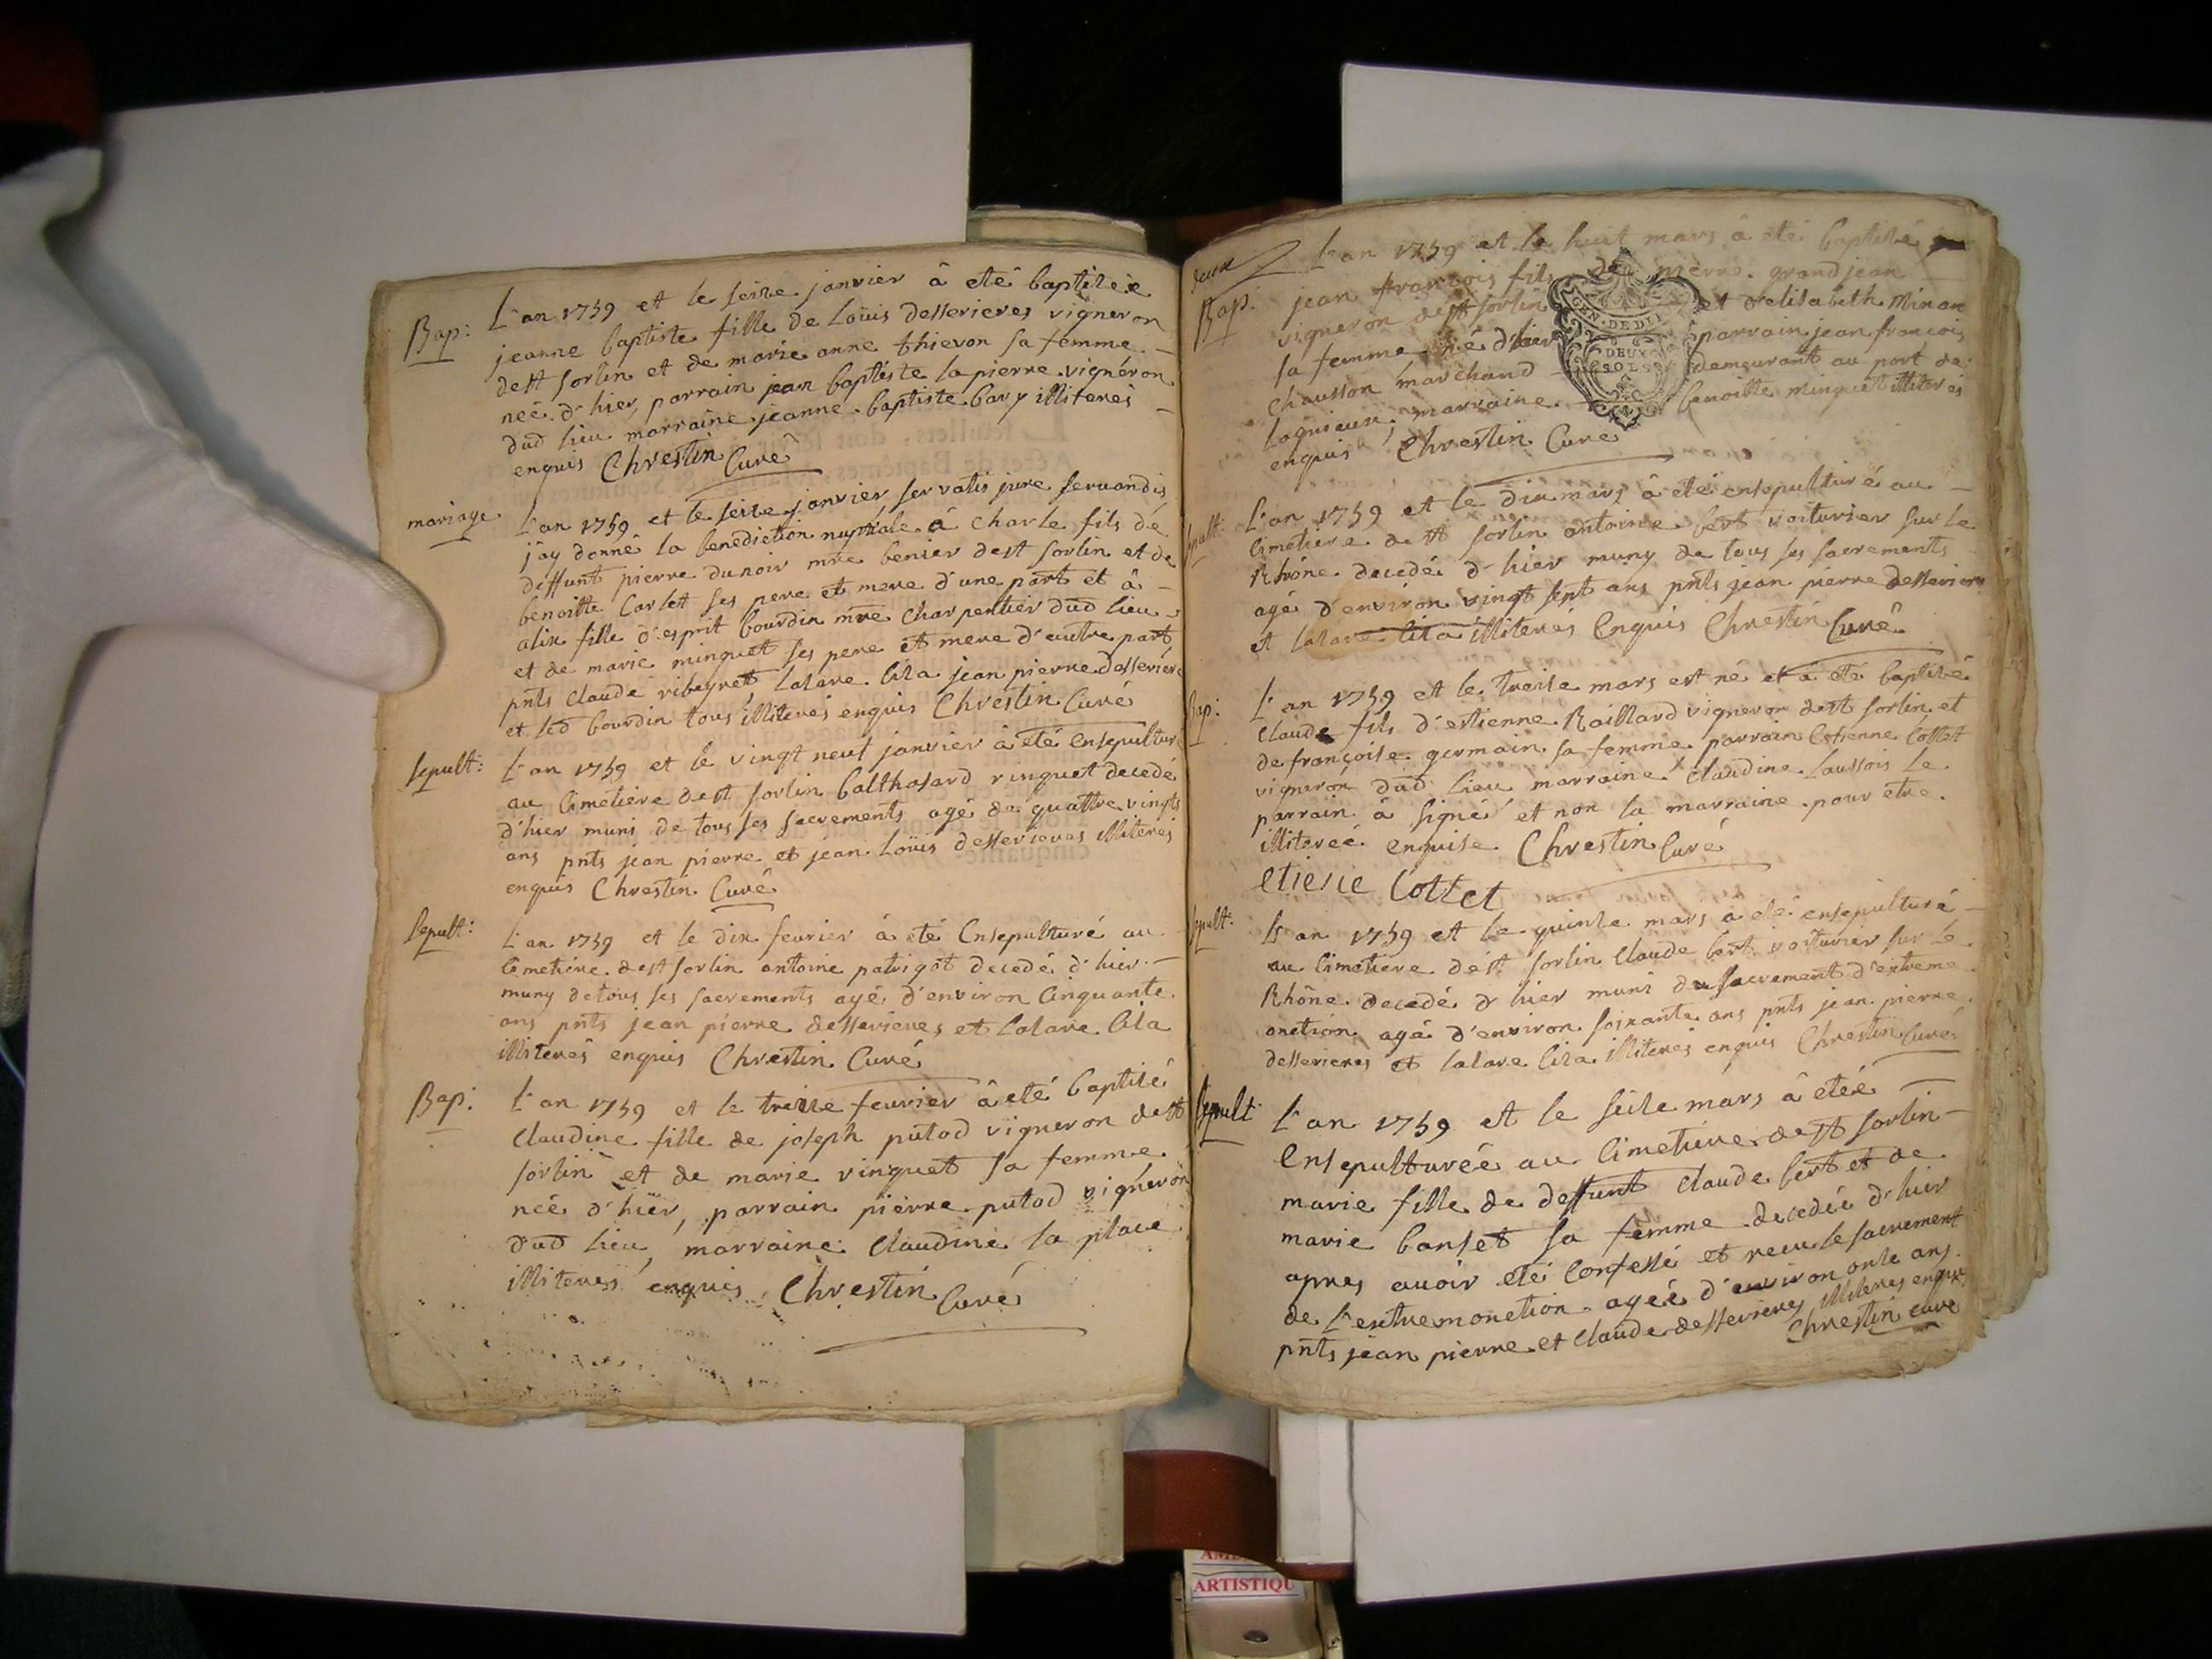 Bap:
L'an 1759 et le seize janvier â eté baptiseé
jeanne baptiste fille de Loüis desserieres vigneron
de st sorlin et de marie anne thievon sa femme
neé d'hier, parrain jean baptiste la pierre vigneron
dud lieu marraine jeanne baptiste bary illiterés
enquis Chrestin Curé
mariage
L'an 1759 et le seize janvier servatis jure servandis
j'ay donné la benediction nuptiale â Charle fils de
deffunt pierre dunoir mre benier de st sorlin et de
benoitte Carlet ses pere et mere d'une part et â
alix fille d'esprit bourdin mre Charpentier dud lieu
et de marie minguet ses pere et mere d'autre part
pnts Claude ribeyret, lalare liza jean pierre desseriere
et led bourdin tous illiterés enquis Chrestin Curé
sepult:
L'an 1759 et le vingt neuf janvier â eté Ensepulturé
au Cimetiere de st sorlin balthasard vinguet decedé
d'hier muni de tous ses sacrements agé de quattre vingts
ans pnts jean pierre et jean Loüis desserieres illiterés
enquis Chrestin Curé
sepult:
L'an 1759 et le dix fevrier â eté Ensepulturé au
Cimetiere de st sorlin antoine patrigot decedé d'hier
muny de tous ses sacrements agé d'environ Cinquante
ans pnts jean pierre desserieres et lalare liza
illiterés enquis Chrestin Curé
Bap.
L'an 1759 et le treize fevrier â eté baptisé
Claudine fille de joseph putod vigneron de st
sorlin et de marie vinguet sa femme
neé d'hier, parrain pierre putod vigneron
dud lieu, marraine Claudine la place
illiterés enquis Chrestin Curé
deux
Bap.
L'an 1759 et le huit mars â eté baptisé
jean françois fils de pierre grand jean
vigneron de st sorlin et d'elisabeth Minan
sa femme né d'hier parrain jean françois
Chausson marchand demeurant au port de
Lagnieux, marraine benoitte minguet illiterés
enquis Chrestin Curé
GEN. DE DIJ
DEUX
SOLS
sepult:
L'an 1759 et le dix mars â eté ensepulturé au
Cimetiere de st sorlin antoine bert voiturier sur le
Rhône decedé d'hier muny de tous ses sacrements
agé d'environ vingt sept ans pnts jean pierre desserieres
et lalare liza illiterés Enquis Chrestin Curé
Bap:
L'an 1759 et le treize mars est né et â eté baptisé
Claude fils d'estienne Raillard vigneron de st sorlin et
de françoise germain sa femme parrain Estienne Cottet
vigneron dud lieu marraine Claudine laussois le
parrain â signé et non la marraine pour etre
illitereé enquise Chrestin Curé
etiene Cottet
sepult:
L'an 1759 et le quinze mars â eté ensepulturé
au Cimetiere de st sorlin Claude bert voiturier sur le
Rhône decedé d'hier muni du sacrement d'extreme
onction agé d'environ soixante ans pnts jean pierre
desserieres et lalare liza illiterés enquis Chrestin Curé
sepult
L'an 1759 et le seize mars â eteé
Ensepultureé au Cimetiere de st sorlin
marie fille de deffunt Claude bert et de
marie banset sa femme decedeé d'hier
apres avoir eté Confessé et recu le sacrement
de L'extremonction ageé d'environ onze ans
pnts jean pierre et Claude desserieres illiterés enquis
Chrestin Curé
ARTISTIQU